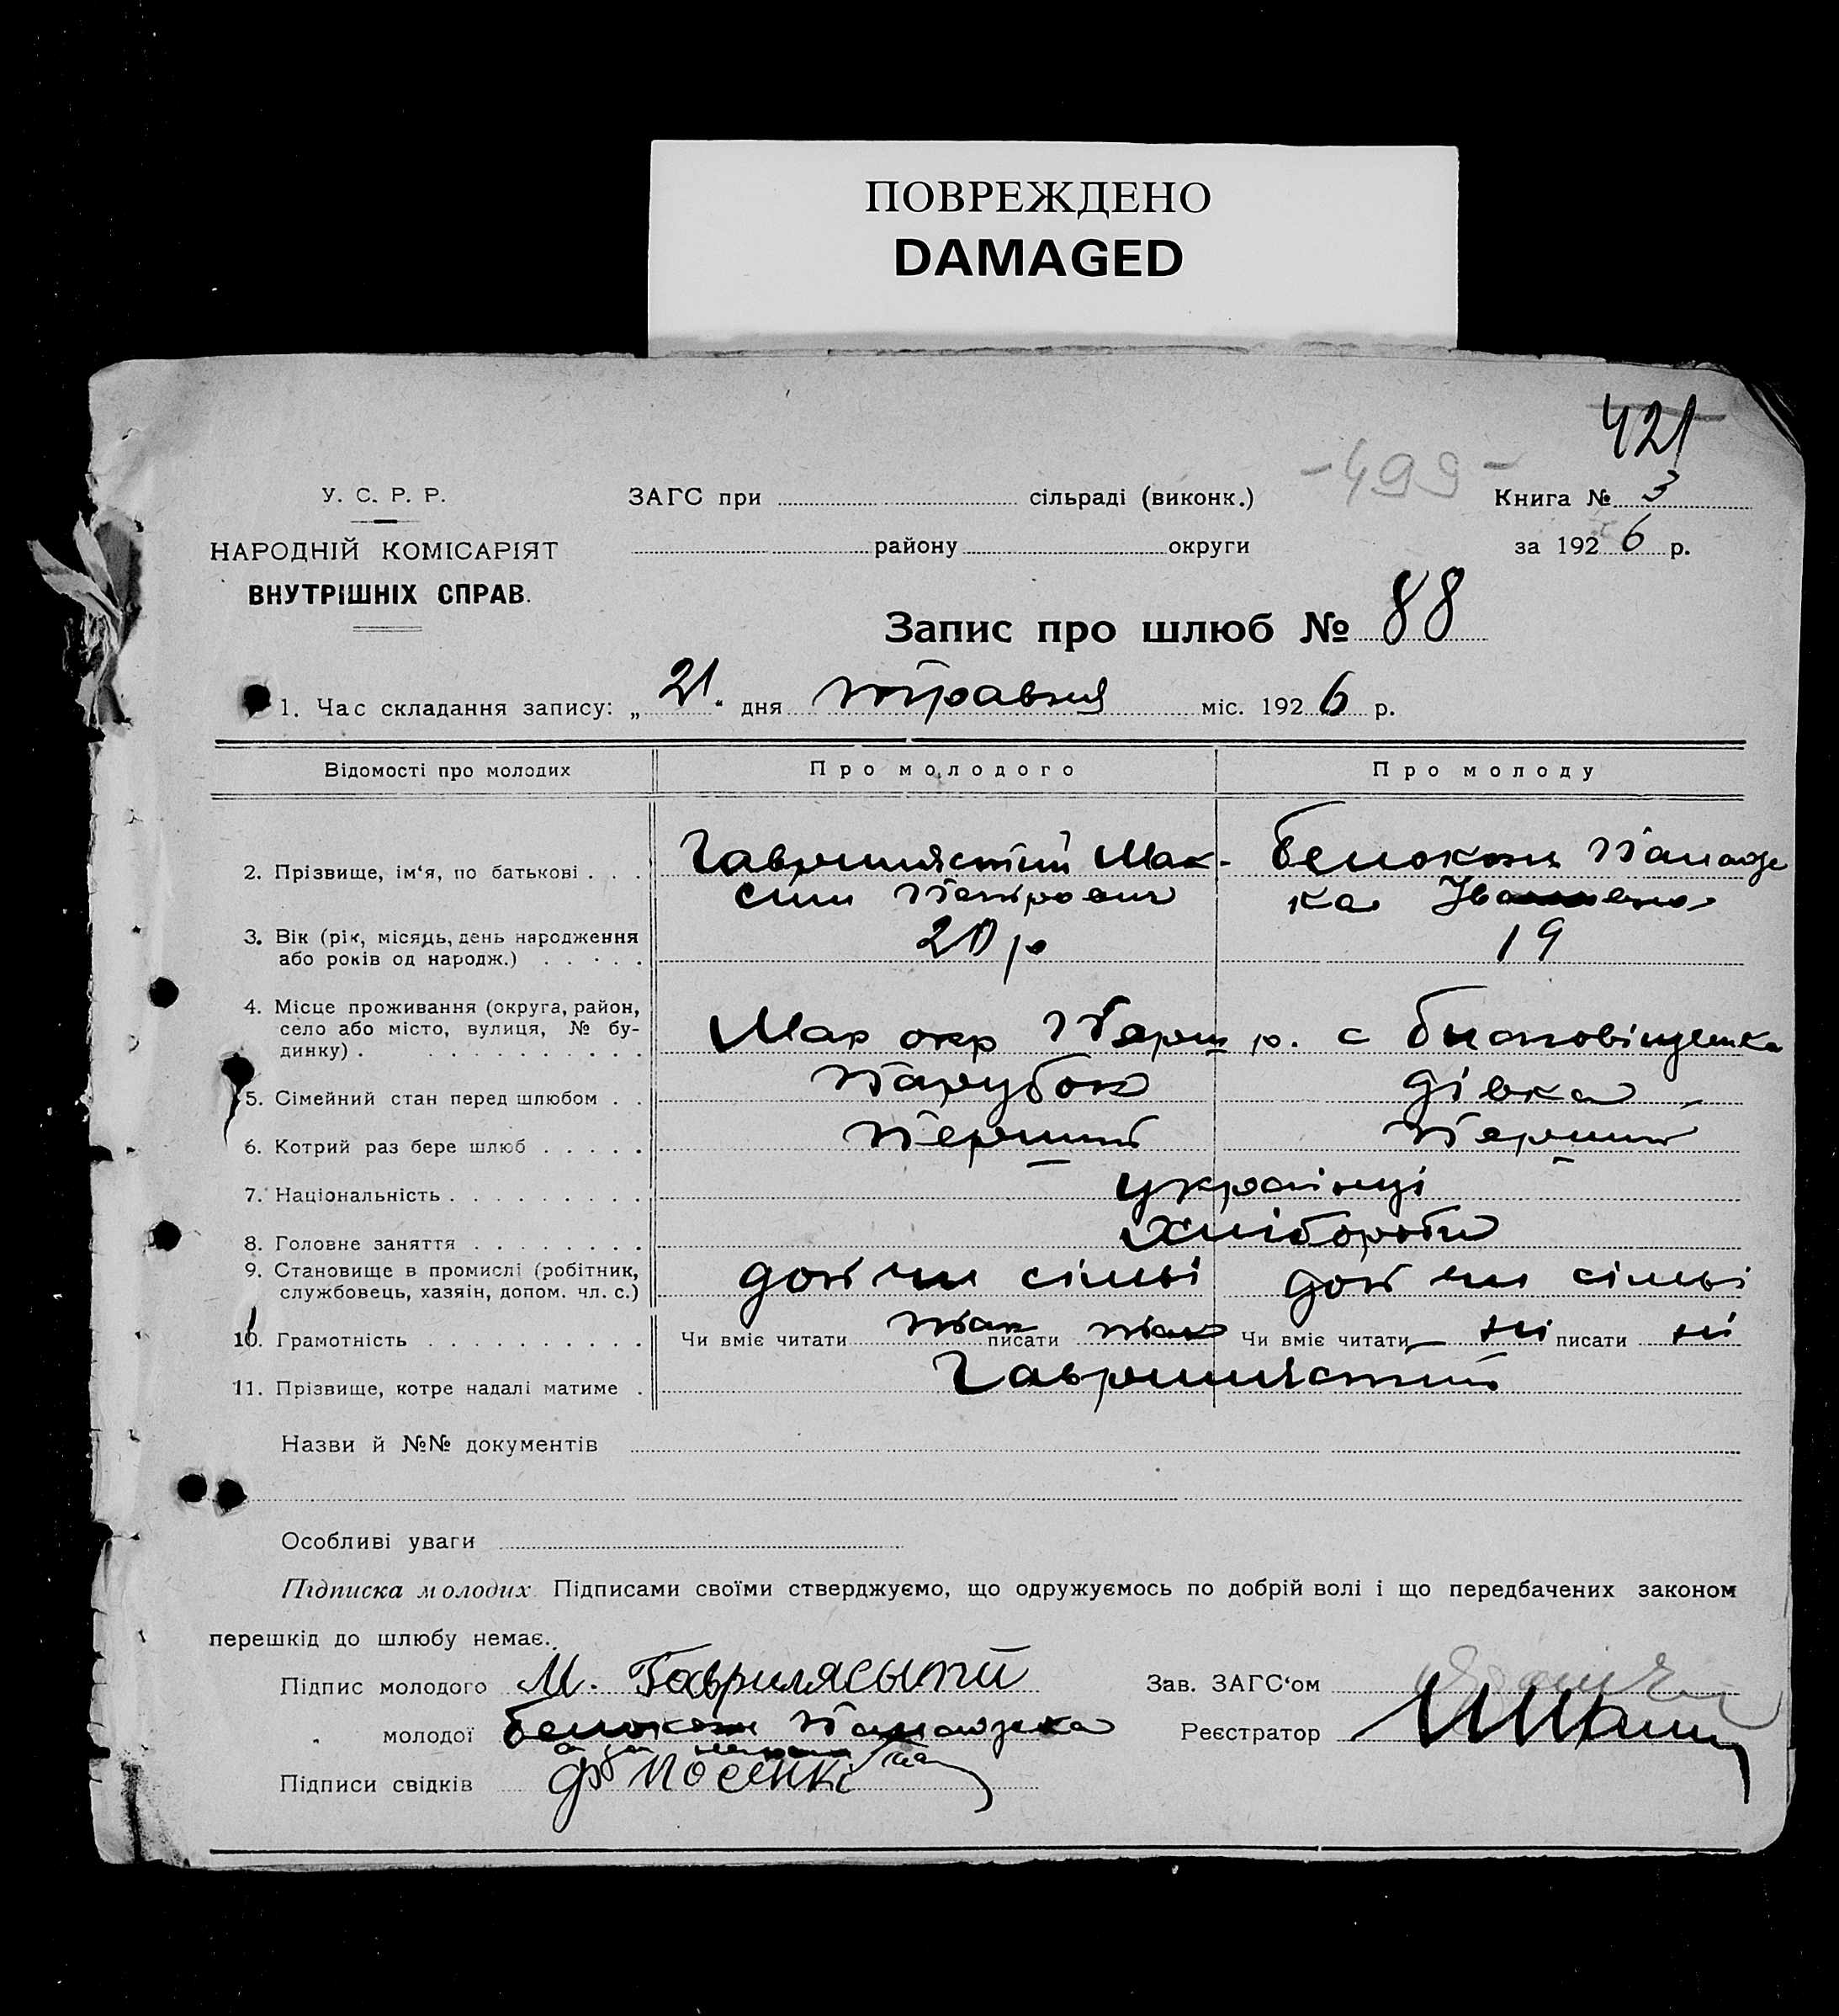 ПОВРЕЖДЕНО
DAMAGED
421
-499-
У. С. Р. Р.
НАРОДНІЙ КОМІСАРІЯТ
ВНУТРІШНІХ СПРАВ.
ЗАГС при сільраді (виконк.)
району округи
Книга № 3
за 1926 р.
Запис про шлюб № 88
1. Час складання запису: „21" дня травня міс. 1926 р.
Відомості про молодих Про молодого Про молоду
2. Прізвище, ім'я, по батькові . . . Мак- Белокон
сим Петрович ка
3. Вік (рік, місяць, день народження
або років од народж.) . . . . . 20 р 19
4. Місце проживання (округа, район,
село або місто, вулиця, № бу-
динку) . . . . . . . . . . . Мар окр Перш р. с
5. Сімейний стан перед шлюбом . . Парубок дівка
6. Котрий раз бере шлюб . . . . . Перший Перший
7. Національність . . . . . . . . . українці
8. Головне заняття . . . . . . . . Хлібороби
9. Становище в промислі (робітник,
службовець, хазяін, допом. чл. с.) доп чл сімьі доп чл сімьі
10. Грамотність . . . . . . . . . . Чи вміє читати так писати так Чи вміє читати ні писати ні
11. Прізвище, котре надалі матиме .
Назви й №№ документів
Особливі уваги
Підписка молодих Підписами своїми стверджуємо, що одружуємось по добрій волі і що передбачених законом
перешкід до шлюбу немає.
Підпис молодого М. Гаврилясытй Зав. ЗАГС'ом
молодої Белокон Реєстратор
Підписи свідків